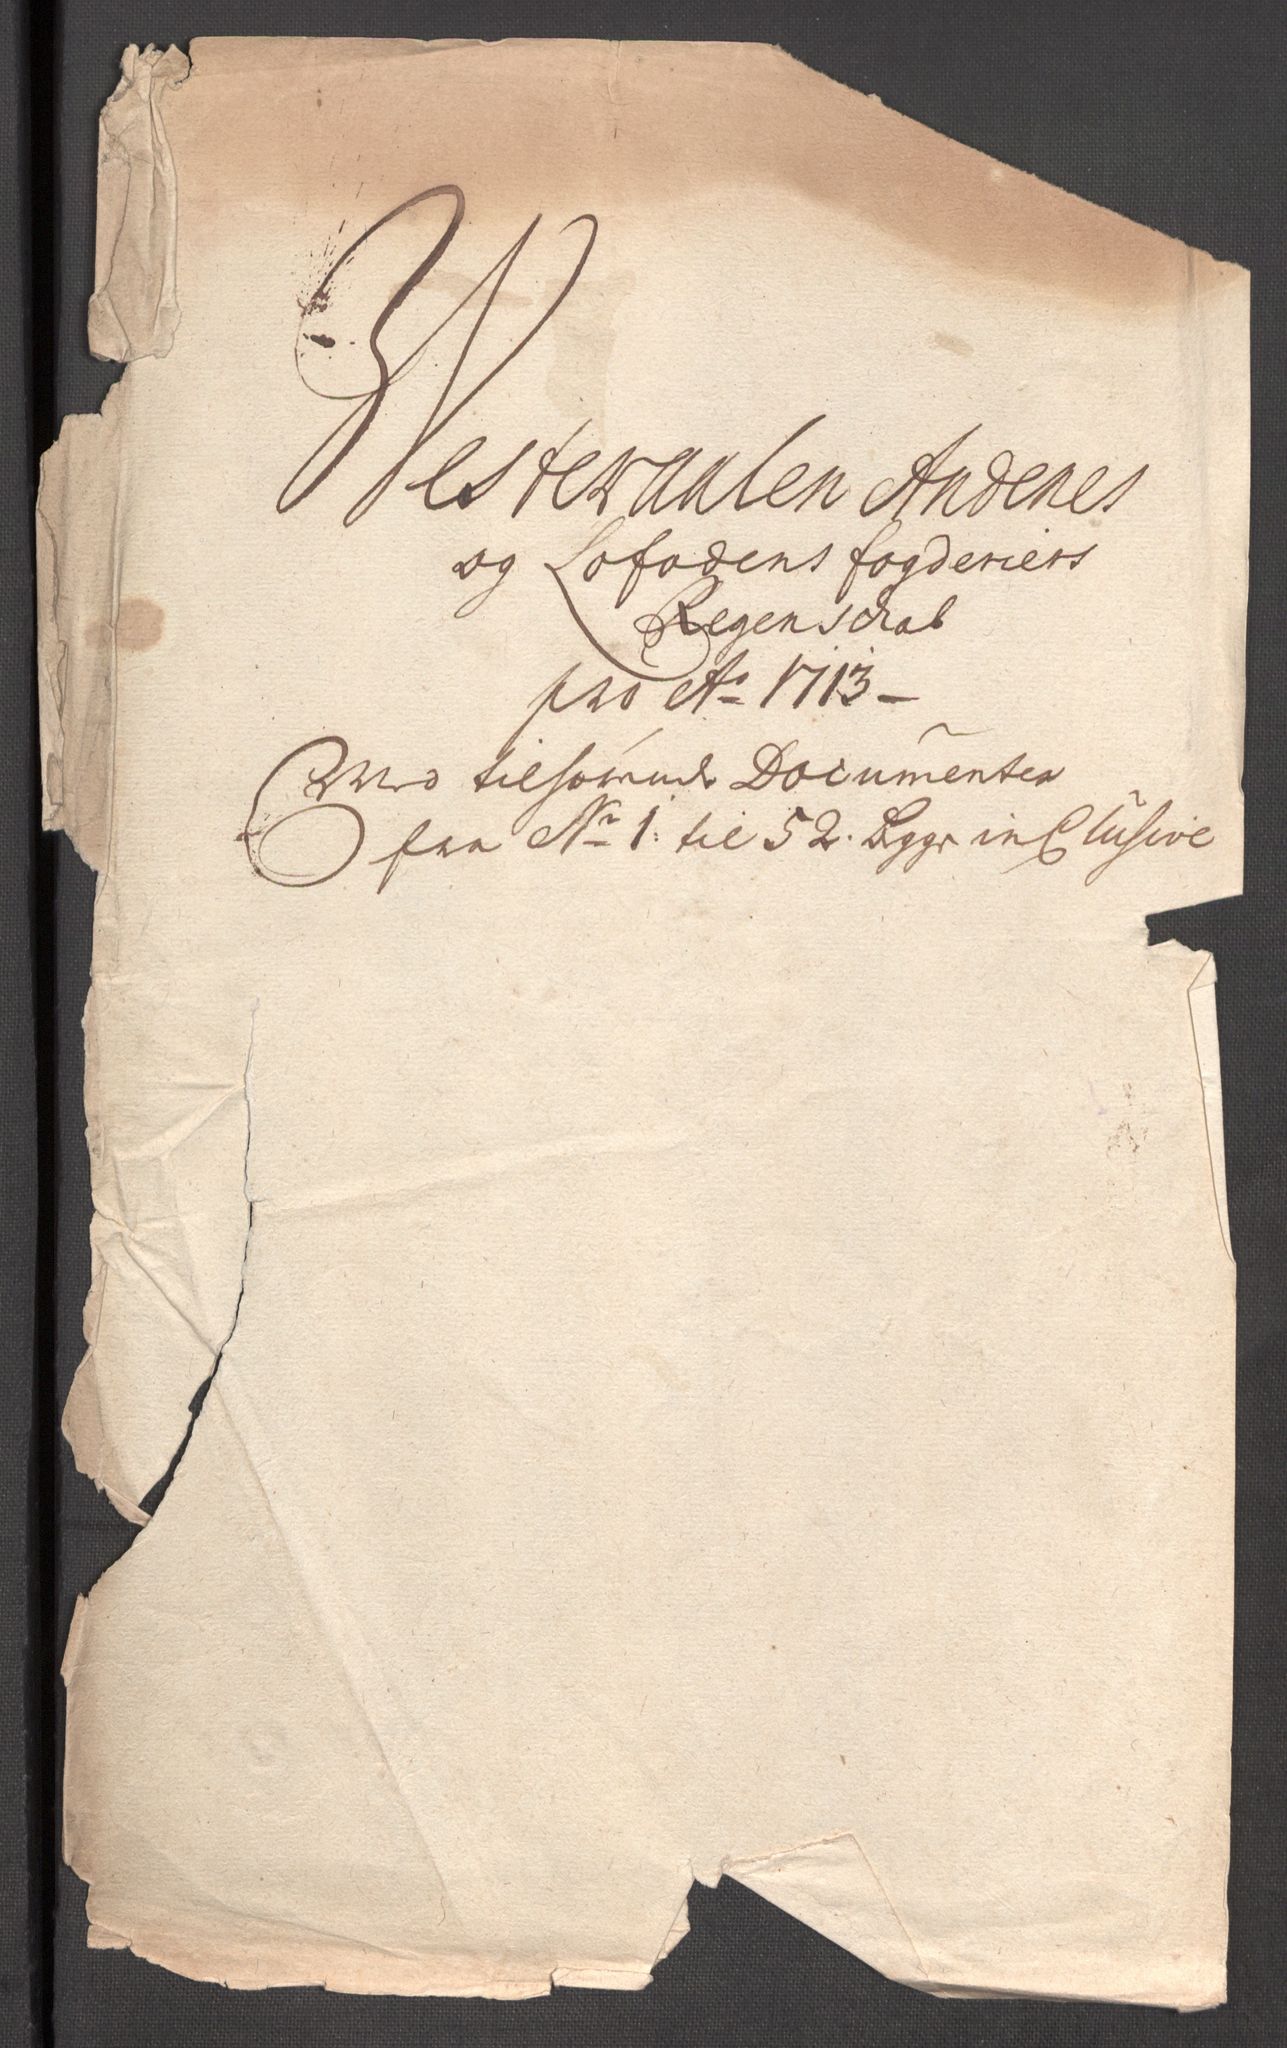 Westeraalen Andenes
og Lofodens fogderiers
Regenschab
pro Ao 1713
Med tilhørende Documenter
fra No 1. til 52. inclusive